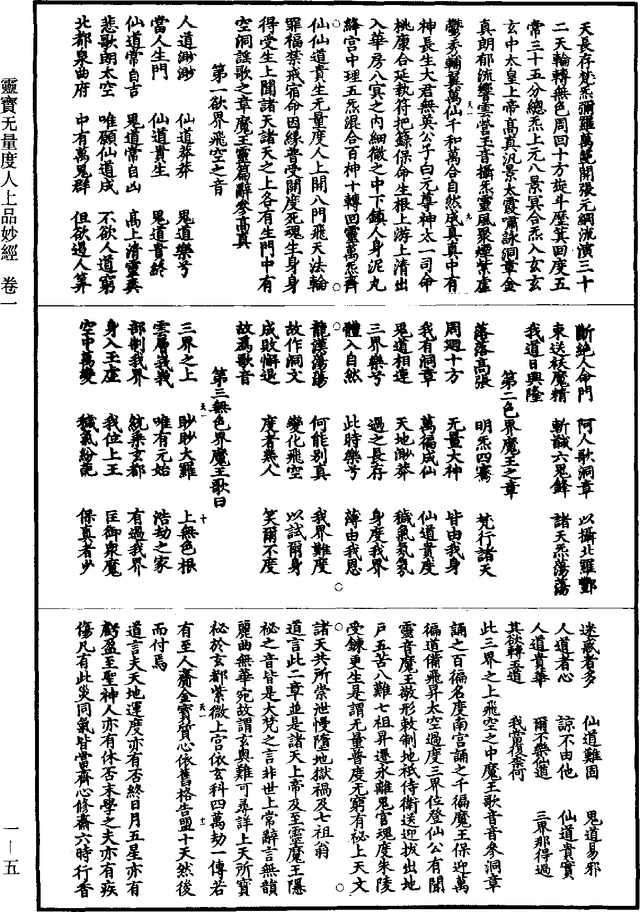 天長存梵炁彌羅萬範開張元綱流演三十
二天輪轉無色周回十方旋斗歷箕回度五
常三十五分總炁上元八景冥合炁入玄玄
玄中太皇上帝高真汎景太霞嘯詠洞章金
真朗郁流響雲營玉音攝炁靈風聚煙紫虛
鬱秀輔翼萬仙千和萬合自然成真真中有
神長生大君無英公子白元尊神太一司命
桃康合延執符把籙保命生根上游上清出
入華房八冥之內細微之中下鎮人身泥丸
絳宮中理五炁混合百神十轉回靈萬炁齊
仙仙道貴生无量度人上開八門飛天法輪
罪福禁戒宿命因緣普受開度死魂生身身
得受生上聞諸天諸天之上各有生門中有
空洞謠歌之章魔王靈篇辭參高真
第一欲界飛空之音
人道渺渺 仙道莽莽 鬼道樂兮
當人生門 仙道貴生 鬼道貴終
仙道常自吉 鬼道常自凶 高上清靈爽
悲歌朗太空 唯願仙道成 不欲人道窮
北都泉曲府 中有萬鬼群 但欲遏人算
斷絕人命門 阿人歌洞章 以攝北羅酆
束送祅魔精 斬馘六鬼鋒 諸天炁蕩蕩
我道日興隆
第二色界魔王之章
落落高張 明炁四騫 梵行諸天
周迴十方 無量大神 皆由我身
我有洞章 萬福成仙 仙道貴度
鬼道相連 天地眇莽 穢氣氛氛
三界樂兮 過之長存 身度我界
體入自然 此時樂兮 薄由我恩
龍漢蕩蕩 何能別真 我界難度
故作洞文 變化飛空 以試爾身
成敗懈退 度者幾人 笑爾不度
故為歌音
第三無色界魔王歌曰
三界之上 眇眇大羅 上無色根
雲層峩峩 唯有元始 浩劫之家
部制我界 統乘玄都 有過我界
身入玉虛 我位上王 匡御眾魔
空中萬變 穢氣紛葩 保真者少
迷惑者多 仙道難固 鬼道易邪
人道者心 諒不由他 仙道貴實
人道貴華 爾不樂仙道 三界那得過
其欲轉五道 我當復柰何
此三界之上飛空之中魔王歌音音參洞章
誦之百徧名度南宮誦之千徧魔王保迎萬
徧道備飛昇太空過度三界位登仙公有聞
靈音魔王敬形敕制地祇侍衛送迎拔出地
戶五苦八難七祖昇遷永離鬼官魂度朱陵
受鍊更生是謂无量普度无窮有祕上天文
諸天共所崇泄慢墮地獄禍及七祖翁
道言此二章並是諸天上帝及至靈魔王隱
祕之音皆是大梵之言非世上常辭言無韻
麗曲無華宛故謂玄奧難可尋詳上天所寶
祕於玄都紫微上宮依玄科四萬劫一傳若
有至人齎金寶質心依舊格告盟十天然後
而付焉
道言夫天地運度亦有否終日月五星亦有
虧盈至聖神人亦有休否末學之夫亦有疾
傷凡有此災同氣皆當齋心修齋六時行香
靈寶无量度人上品妙經 卷一
一—五